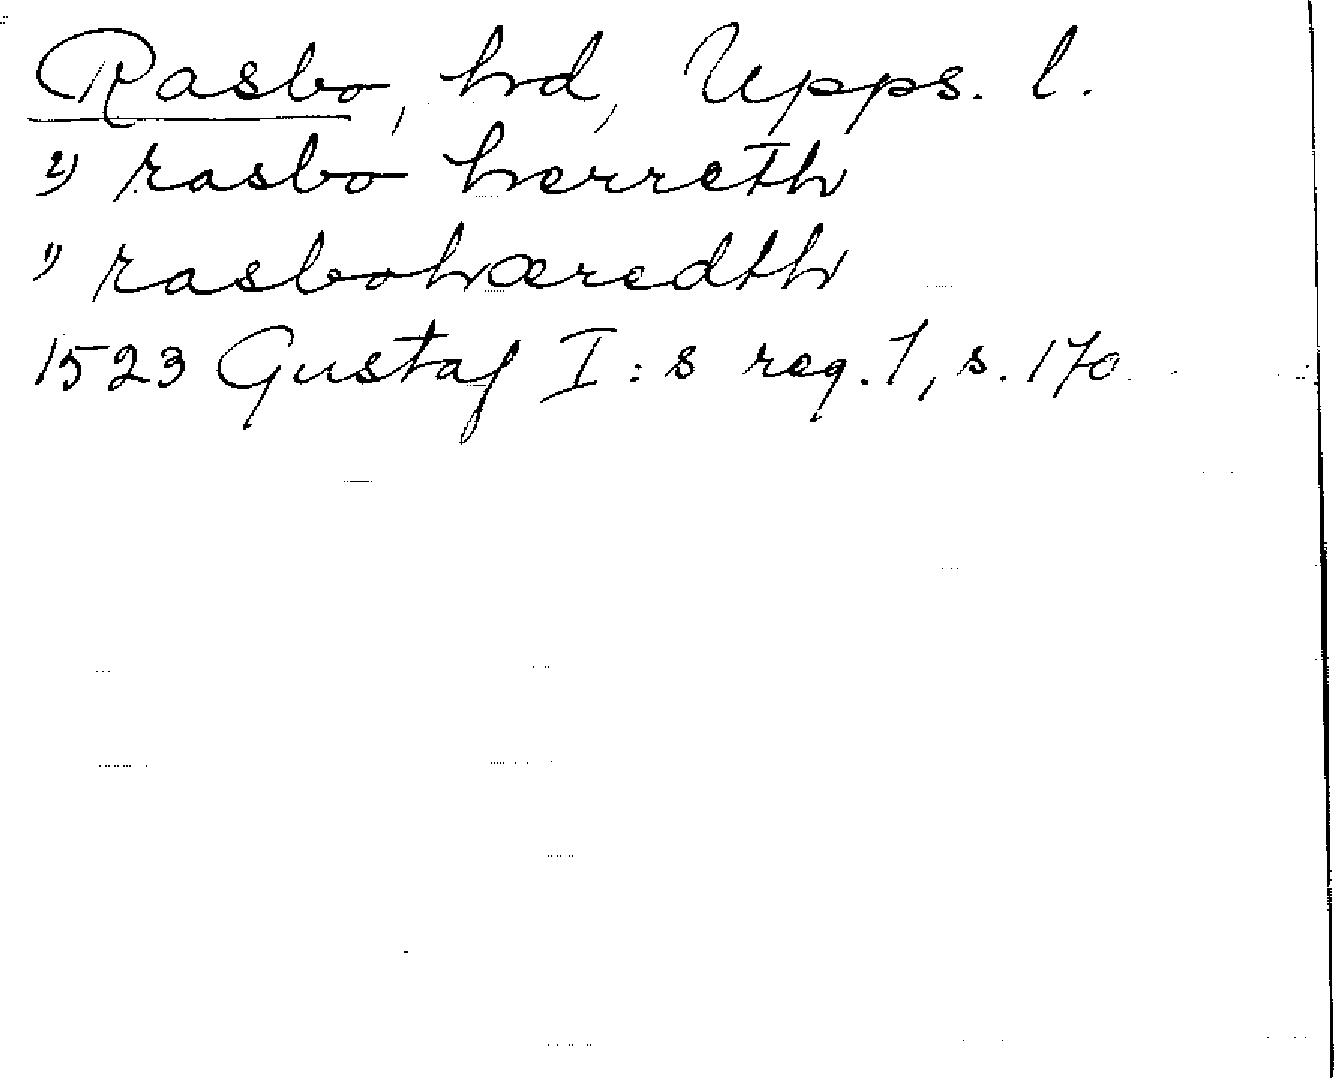 Rasbo, hd, Upps. l.
2) rasbo herreth
1) rasbohæredth
1523 Gustaf I:s reg. 1, s. 170